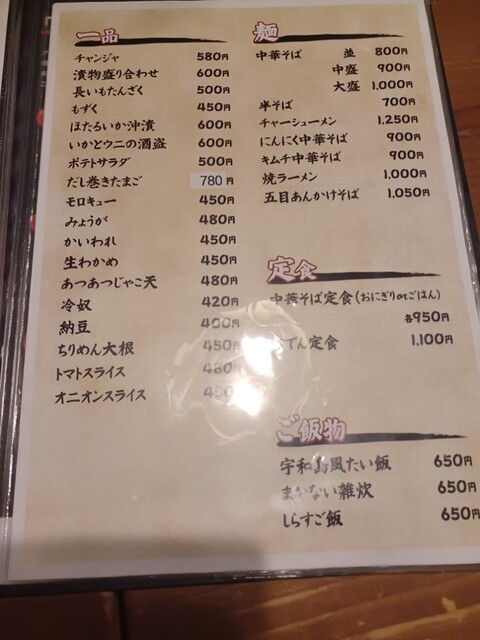 一品
チャンジャ 580円
漬物盛り合わせ 600円
長いもたんざく 500円
もずく 450円
ほたるいか沖漬 600円
いかとウニの酒盗 600円
ポテトサラダ 500円
だし巻きたまご 780円
モロキュー 450円
みょうが 480円
かいわれ 450円
生わかめ 450円
あつあつじゃこ天 480円
冷奴 420円
納豆 400円
ちりめん大根 450円
トマトスライス 480円
オニオンスライス 450円
麺
中華そば 並 800円
中盛 900円
大盛 1,000円
半そば 700円
チャーシューメン 1,250円
にんにく中華そば 900円
キムチ中華そば 900円
焼ラーメン 1,000円
五目あんかけそば 1,050円
定食
中華そば定食(おにぎりorごはん)
各950円
でん定食 1,100円
ご飯物
宇和島風たい飯 650円
まかない雑炊 650円
しらすご飯 650円